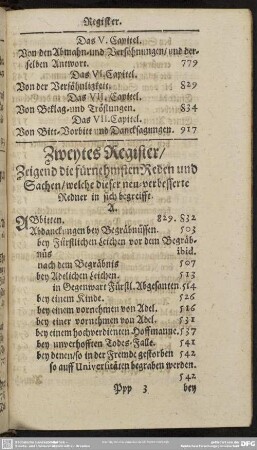 Register.
Das V. Capitel.
Von den Abmahn- und Versöhnungen/ und der-
selben Antwort. 779
Das VI. Capitel.
Von der Versöhnligkeit. 829
Das VII. Capitel.
Von Beklag- und Tröstungen. 834
Das VII. Capitel.
Von Bitt- Vorbitt und Dancksagungen. 917
Zweytes Register/
Zeigend die fürnehmsten Reden und
Sachen/ welche dieser neu-verbesserte
Redner in sich begreifft.
A.
Abbitten. 829. 832
Abdanckungen bey Begräbnüssen. 503
bey Fürstlichen Leichen vor dem Begräb-
nüs ibid.
nach dem Begräbnis 507
bey Adelichen Leichen. 513
in Gegenwart Fürstl. Abgesanten 514
bey einem Kinde. 526
bey einem vornehmen von Adel. 516
bey einer vornehmen von Adel. 531
bey einem hochverdienten Hoffmanne. 537
bey unverhofften Todes-Falle. 541
bey denen/ so in der Fremde gestorben 542
so auff Universitäten begraben werden.
542
Ppp 3 bey